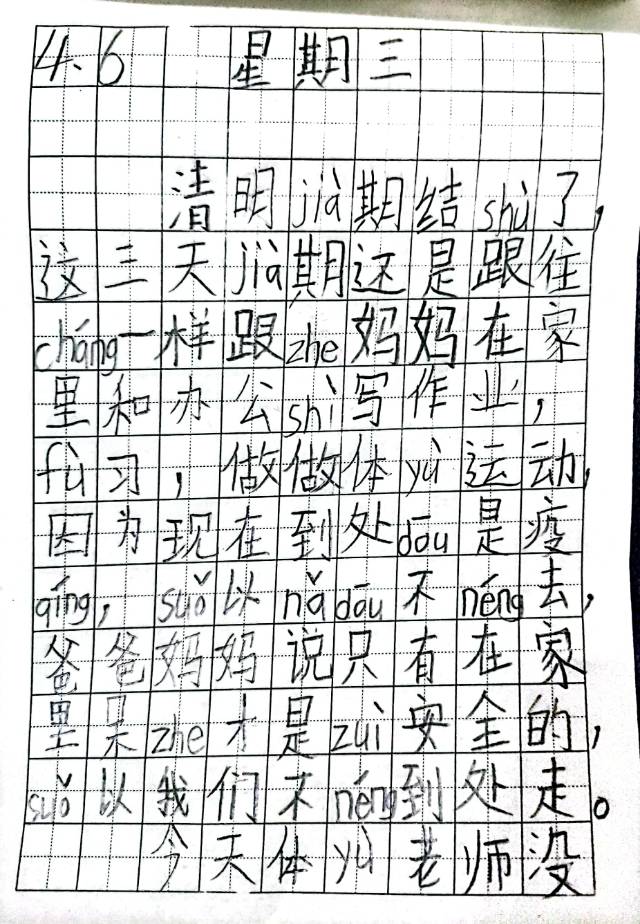 4.6 星期三
清明jià期结shù了,
这三天jià期还是跟往
cháng一样跟zhe妈妈在家
里和办公shì写作业,
fù习,做做体yù运动,
因为现在到处dōu是疫
qíng,suǒ以nǎdōu不néng去,
爸爸妈妈说只有在家
里呆zhe才是zuì安全的,
suǒ以我们不néng到处走。
今天体yù老师没